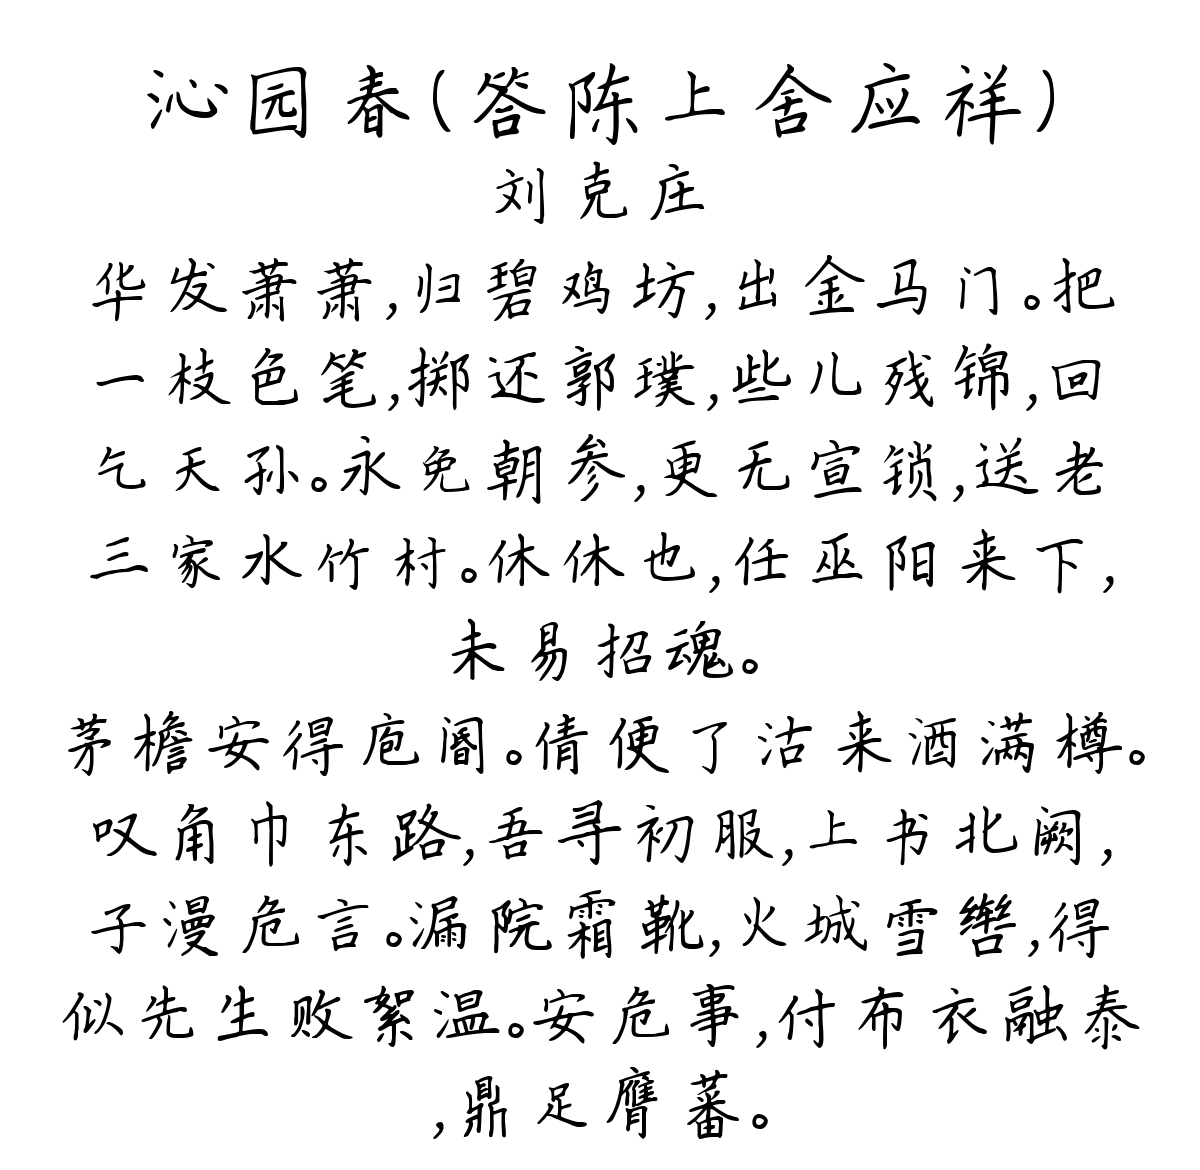 沁园春(答陈上舍应祥)
刘克庄
华发萧萧,归碧鸡坊,出金马门。把
一枝色笔,掷还郭璞,些儿残锦,回
乞天孙。永免朝参,更无宣锁,送老
三家水竹村。休休也,任巫阳来下,
未易招魂。
茅檐安得庖阍。倩便了沽来酒满樽。
叹角巾东路,吾寻初服,上书北阙,
子漫危言。漏院霜靴,火城雪辔,得
似先生败絮温。安危事,付布衣融泰
,鼎足膺蕃。